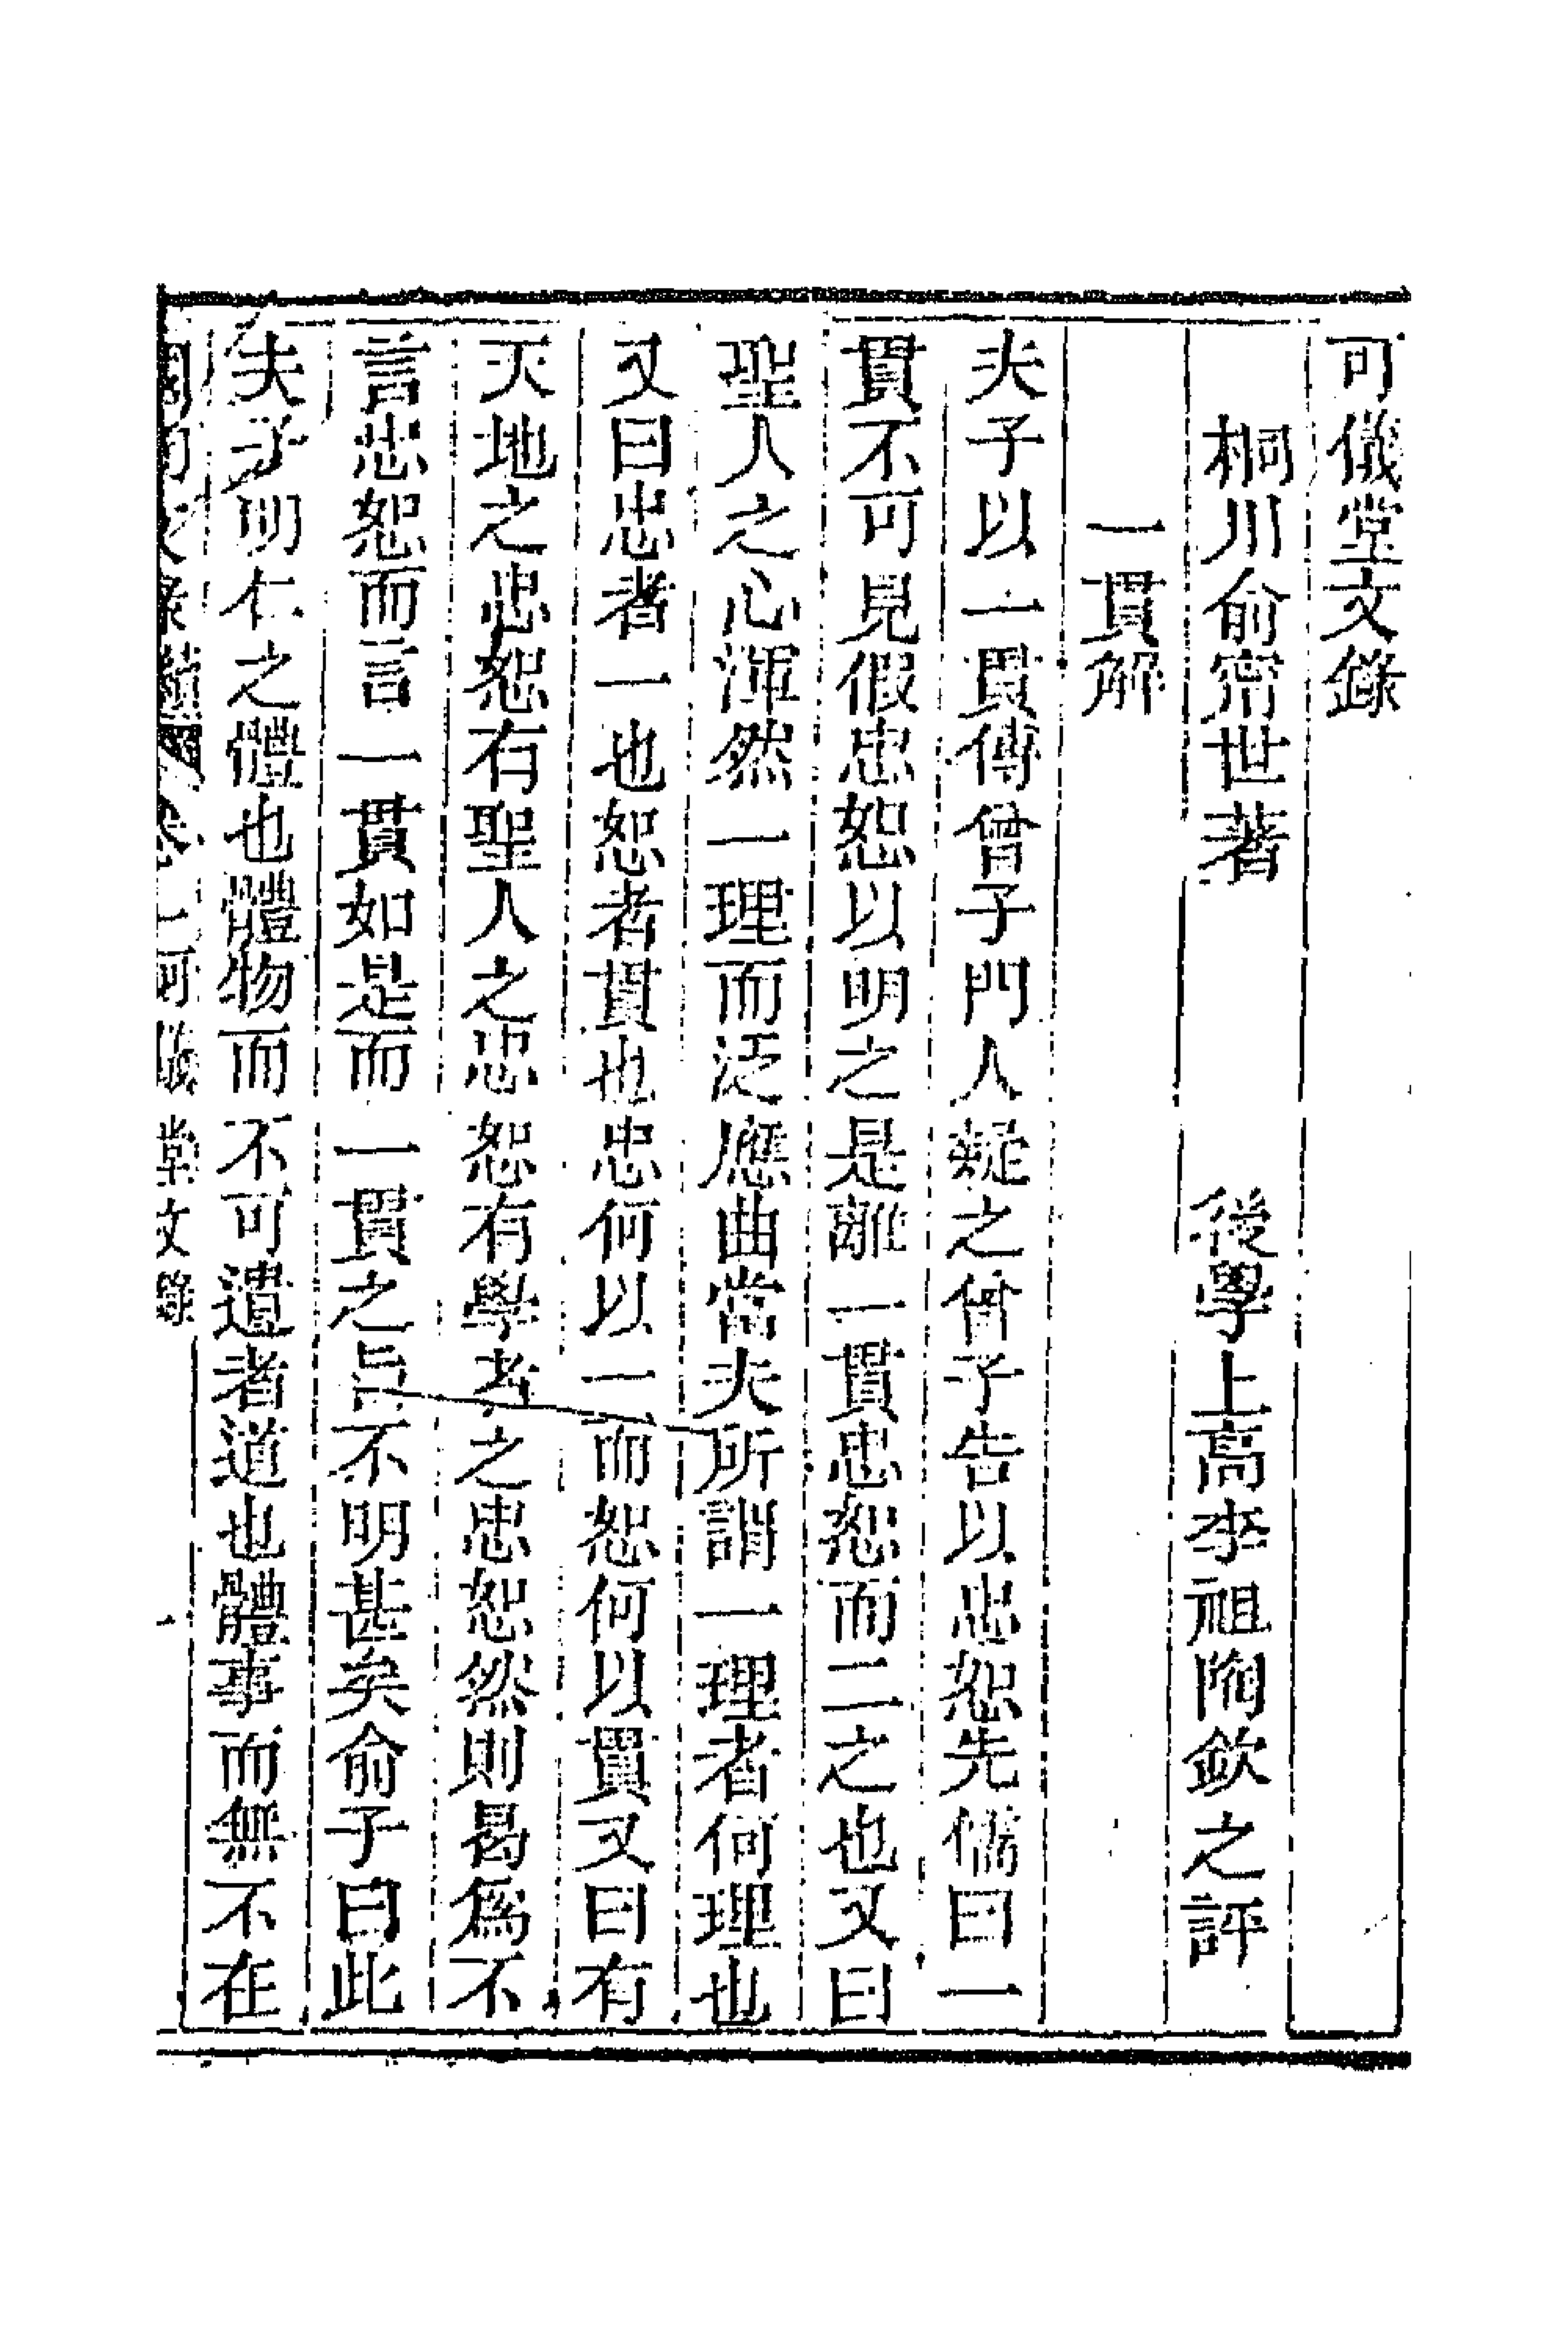 可儀堂文錄
桐川俞甯世著　後學上高李祖陶欽之評
一貫解
夫子以一貫傳曾子門人疑之曾子告以忠恕先儒曰一
貫不可見假忠恕以明之是離一貫忠恕而二之也又曰
聖人之心渾然一理而泛應曲當夫所謂一理者何理也
又曰忠者一也恕者貫也忠何以一而恕何以貫又曰有
天地之忠恕有聖人之忠恕有學者之忠恕然則曷爲不
言忠恕而言一貫如是而一貫之旨不明甚矣俞子曰此
夫子明仁之體也體物而不可遺者道也體事而無不在
文錄 卷一可儀堂文錄 一